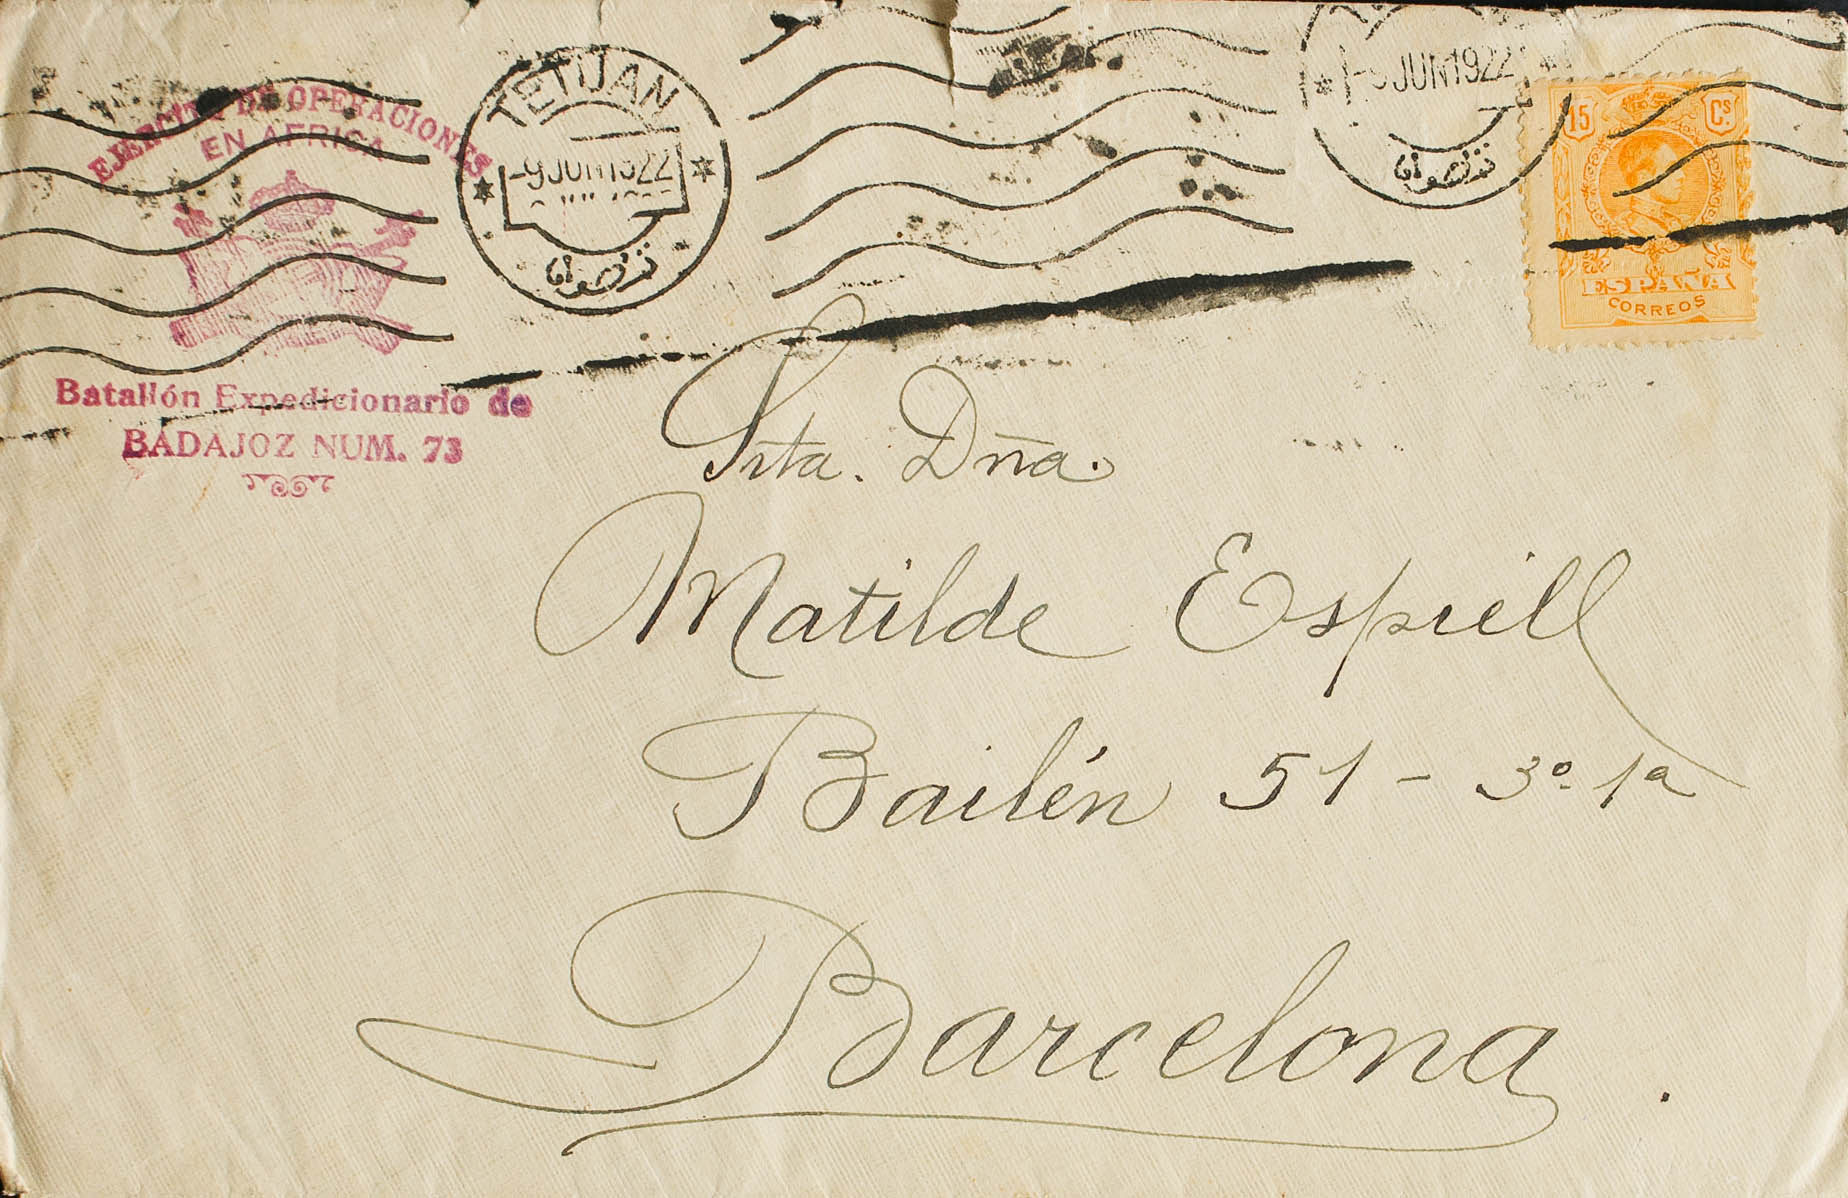 EJERCITO DE OPERACIONES
EN AFRICA
Batallón Expedicionario de
BADAJOZ NUM. 73
TETUAN
-9 JUN 1922
JUN 1922
15 Cs
ESPAÑA
CORREOS
Srta. Dña.
Matilde Espiell
Bailén 51 - 3º 1ª
Barcelona.